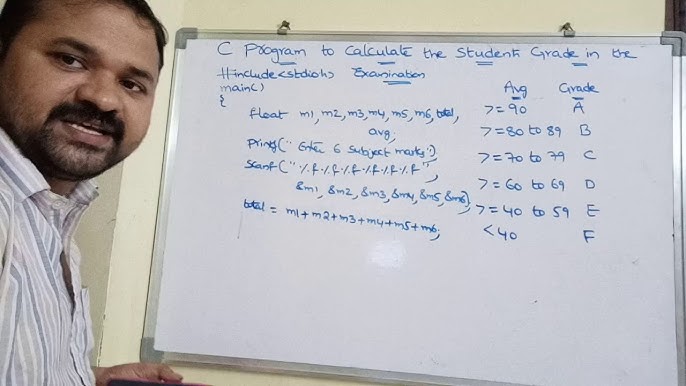 C Program to Calculate the Student Grade in the
Examination
#include<stdio.h>
main()
{
float m1, m2, m3, m4, m5, m6, total,
avg;
printf(" Enter 6 subject marks");
scanf("%f%f%f%f%f%f",
&m1, &m2, &m3, &m4, &m5, &m6);
total = m1+m2+m3+m4+m5+m6;
Avg Grade
>=90 A
>=80 to 89 B
>=70 to 79 C
>=60 to 69 D
>=40 to 59 E
<40 F